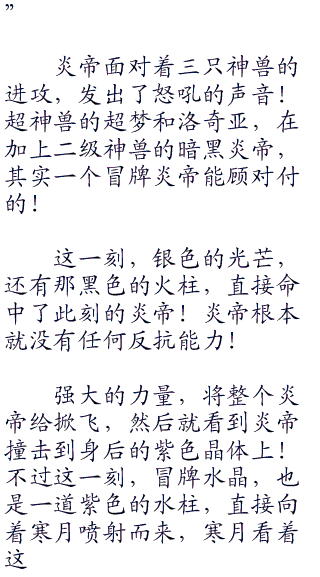 ”
炎帝面对着三只神兽的
进攻，发出了怒吼的声音！
超神兽的超梦和洛奇亚，在
加上二级神兽的暗黑炎帝，
其实一个冒牌炎帝能顾对付
的！
这一刻，银色的光芒，
还有那黑色的火柱，直接命
中了此刻的炎帝！炎帝根本
就没有任何反抗能力！
强大的力量，将整个炎
帝给掀飞，然后就看到炎帝
撞击到身后的紫色晶体上！
不过这一刻，冒牌水晶，也
是一道紫色的水柱，直接向
着寒月喷射而来，寒月看着
这